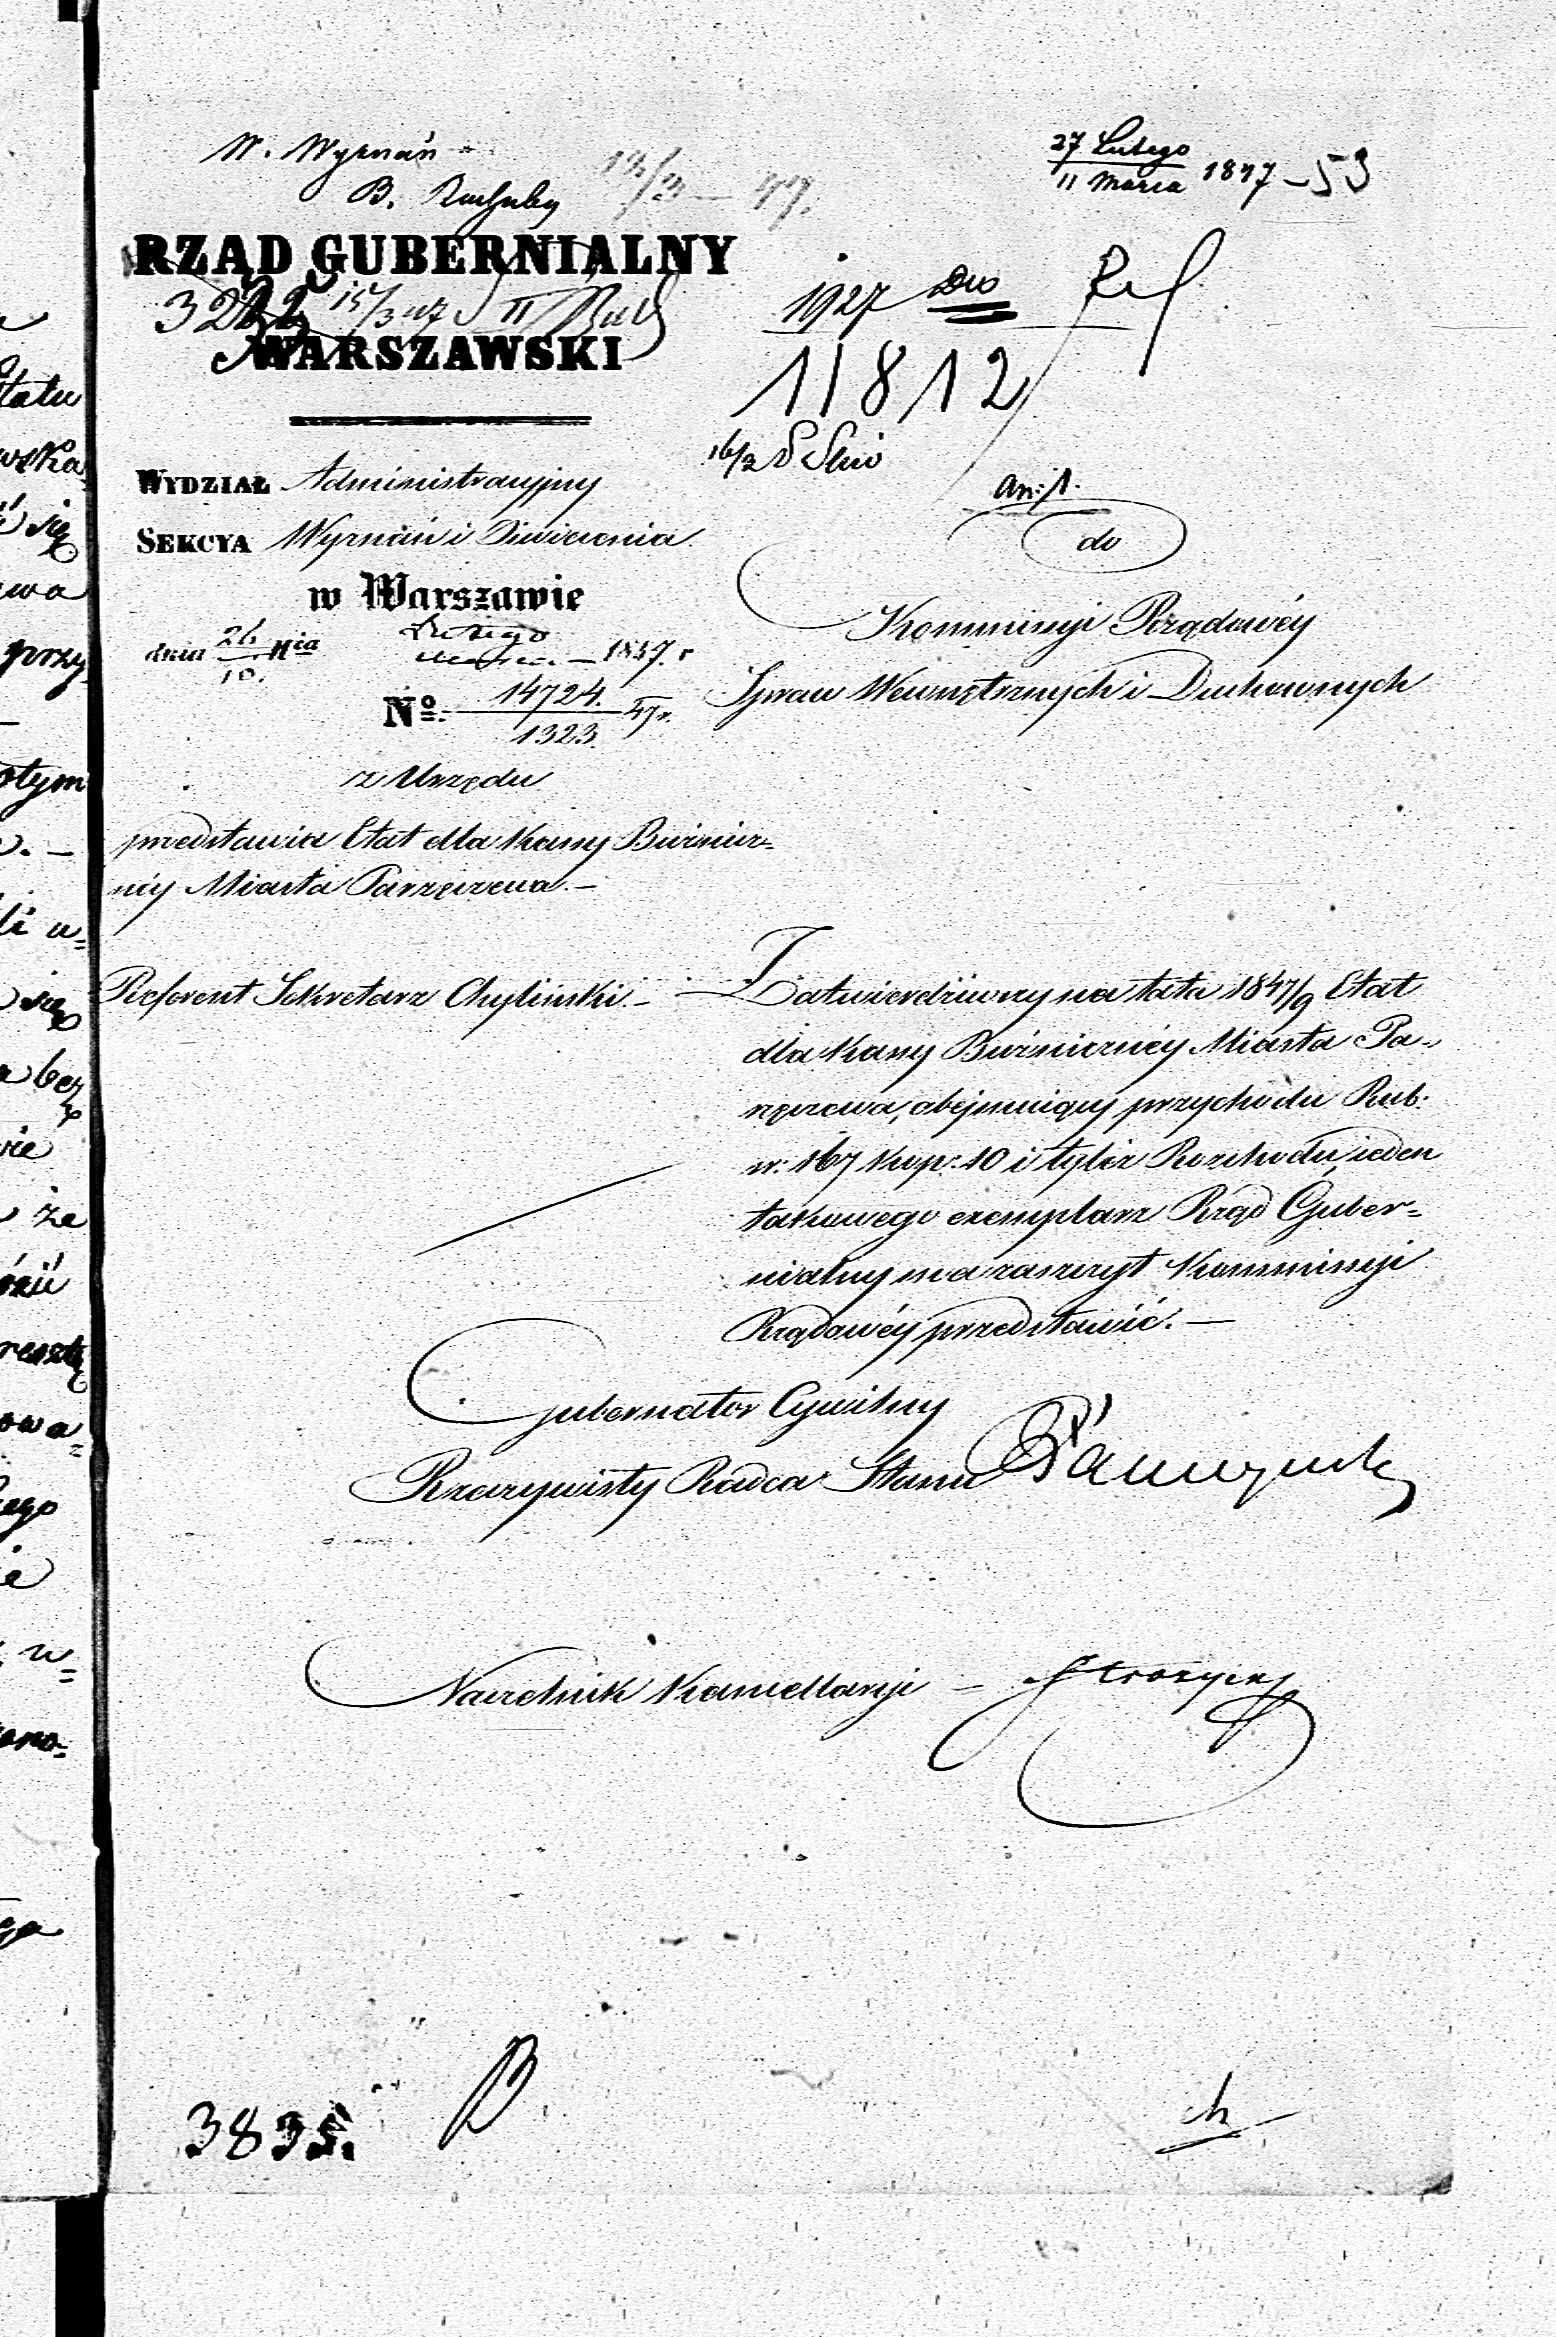 W. Wyznań
B. Rachuby
13/3 — 47.
27 Lutego
11 Marca 1847 – 53
RZĄD GUBERNIALNY
WARSZAWSKI
15/3 47
1927
11812
16/3
Ref
an: 1.
WYDZIAŁ Administracyjny
SEKCYA Wyznań i
w Warszawie
dnia 26/10. Nia Lutego/Marca – 1847. r
No. 14724./1323. 47 r.
z Urzędu
przedstawia Etat dla Kassy Bóżnicz=
néy Miasta Parzęczewa. –
Referent Sekretarz Chyliński. –
do
Kommissyi Rządowéy
Spraw Wewnętrznych i Duchownych
Zatwierdziwszy na lata 1847/9 Etat
dla Kassy Bóżnicznéy Miasta Pa-
rzęczewa, obejmujący przychodu Rub:
sr: 167 kop: 10 i tyleż Rozchodu, ieden
takowego exemplarz Rząd Guber=
nialny ma zaszczyt Kommissyi
Rządowéy przedstawić. –
Gubernator Cywilny
Rzeczywisty Radca Stanu
Naczelnik Kancellaryi –
3835.